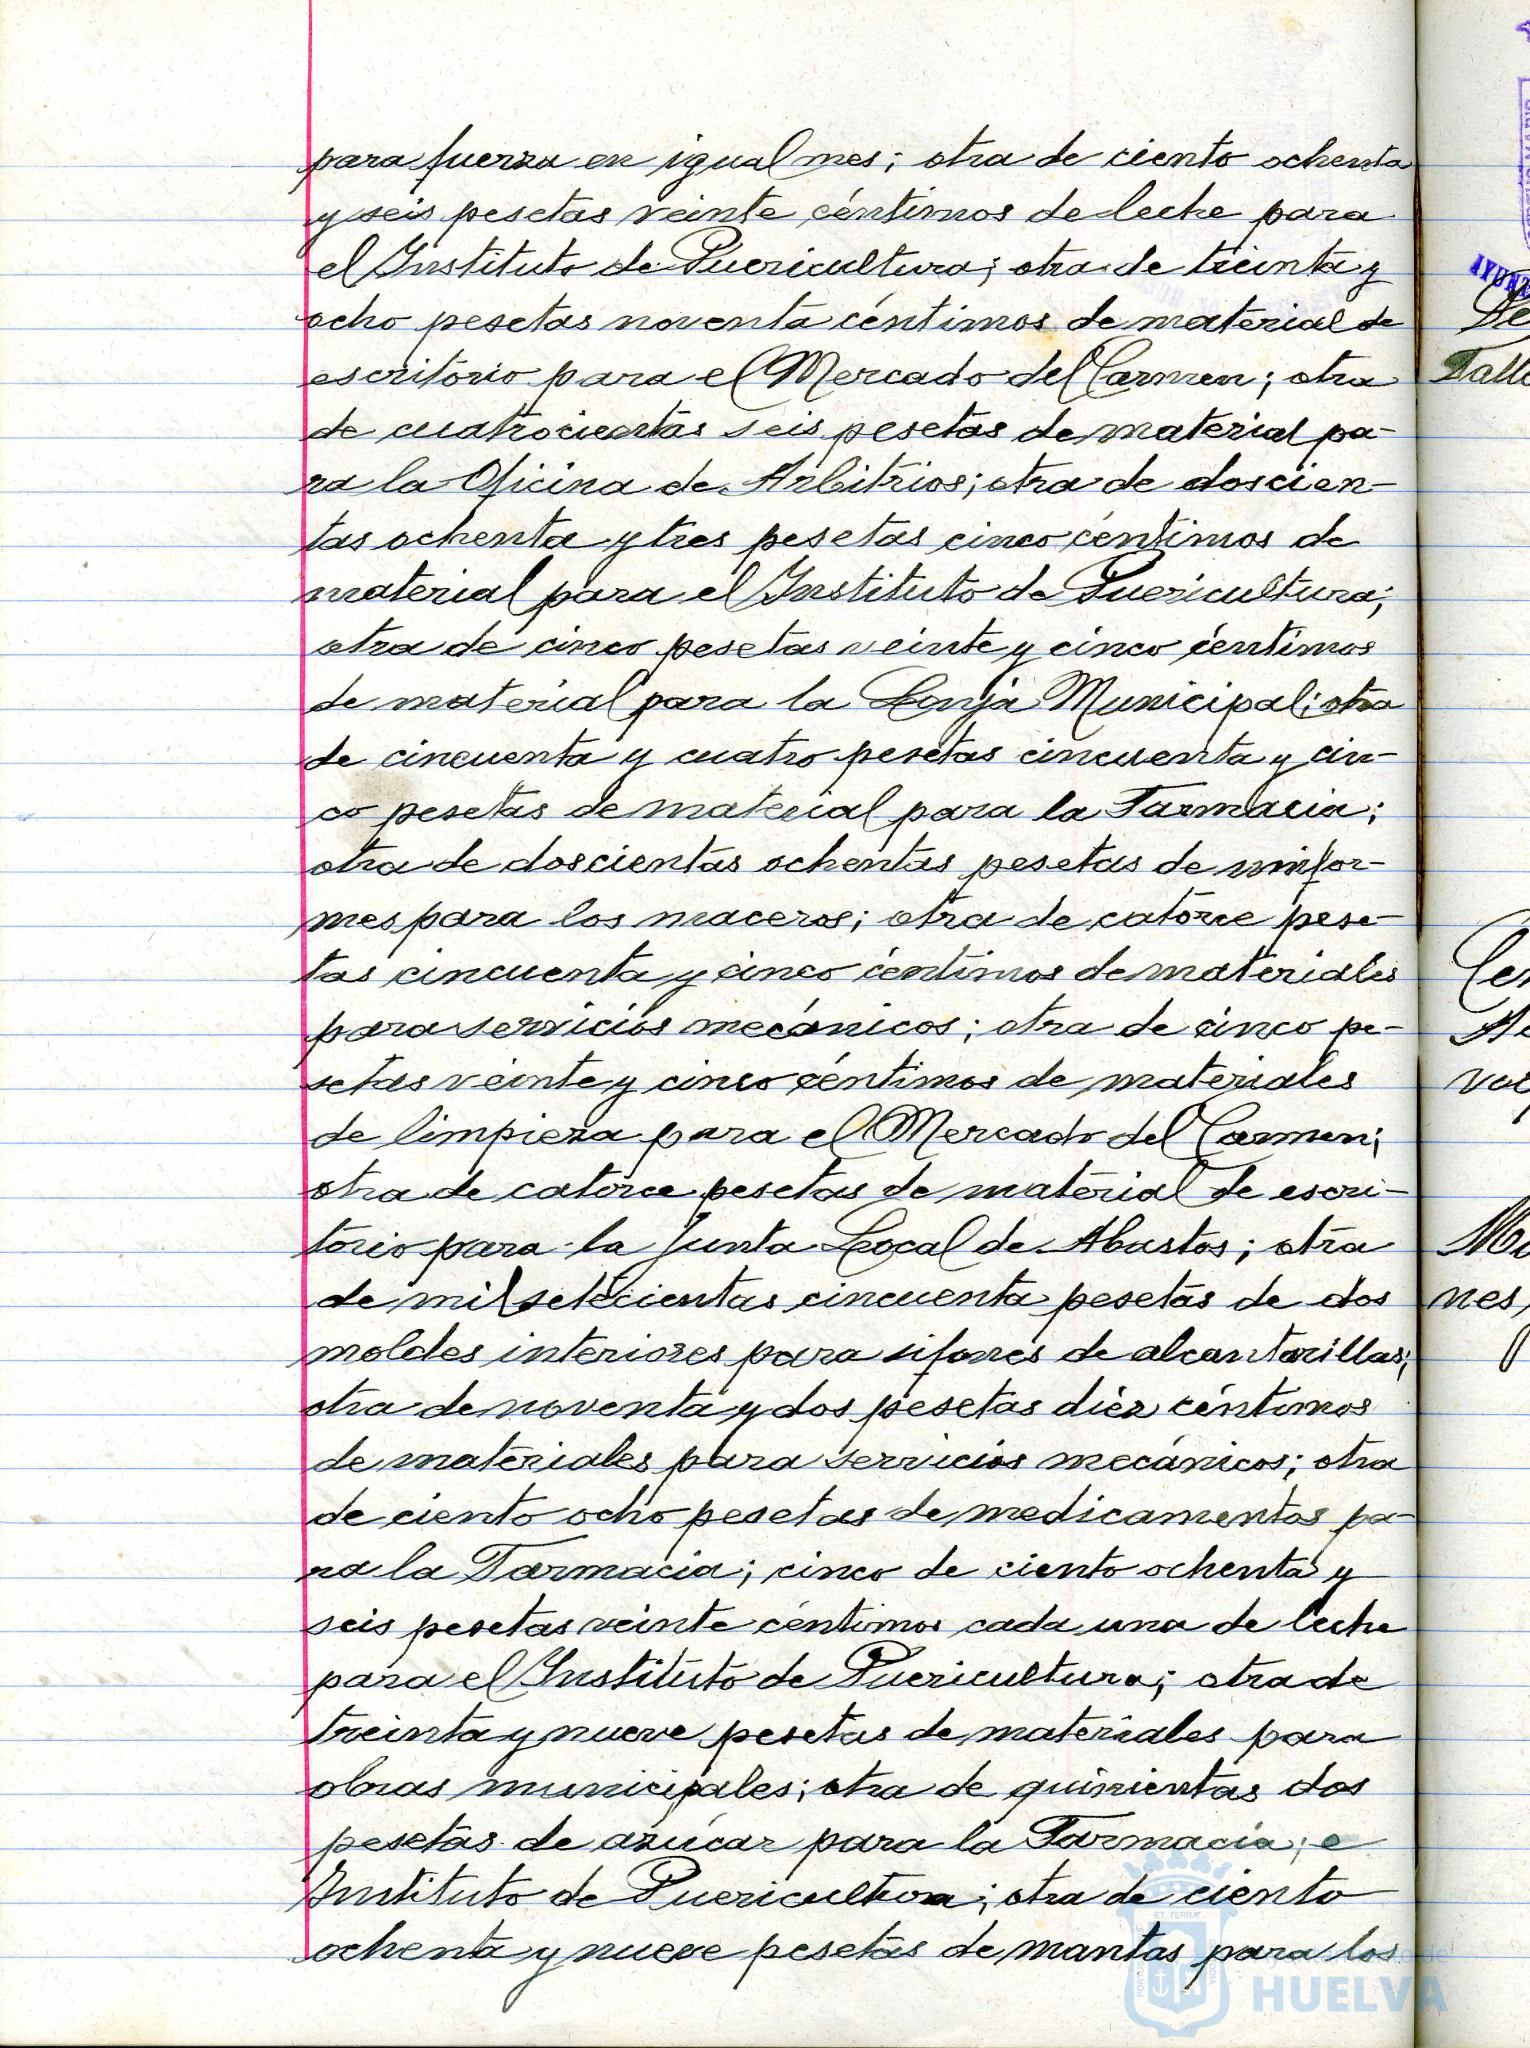 para fuerza en igual mes; otra de ciento ochenta
y seis pesetas veinte céntimos de leche para
el Instituto de Puericultura; otra de treinta y
ocho pesetas noventa céntimos de material de
escritorio para el Mercado del Carmen; otra
de cuatrocientas seis pesetas de material pa-
ra la Oficina de Arbitrios; otra de doscien-
tas ochenta y tres pesetas cinco céntimos de
material para el Instituto de Puericultura;
otra de cinco pesetas veinte y cinco céntimos
de material para la Lonja Municipal; otra
de cincuenta y cuatro pesetas cincuenta y cin-
co pesetas de material para la Farmacia;
otra de doscientas ochentas pesetas de unifor-
mes para los maceros; otra de catorce pese-
tas cincuenta y cinco céntimos de materiales
para servicios mecánicos; otra de cinco pe-
setas veinte y cinco céntimos de materiales
de limpieza para el Mercado del Carmen;
otra de catorce pesetas de material de escri-
torio para la Junta Local de Abastos; otra
de mil setecientas cincuenta pesetas de dos
moldes interiores para sifones de alcantarillas;
otra de noventa y dos pesetas diez céntimos
de materiales para servicios mecánicos; otra
de ciento ocho pesetas de medicamentos pa-
ra la Farmacia; cinco de ciento ochenta y
seis pesetas veinte céntimos cada una de leche
para el Instituto de Puericultura; otra de
treinta y nueve pesetas de materiales para
obras municipales; otra de quinientas dos
pesetas de azúcar para la Farmacia, e
Instituto de Puericultura; otra de ciento
ochenta y nueve pesetas de mantas para los
HUELVA